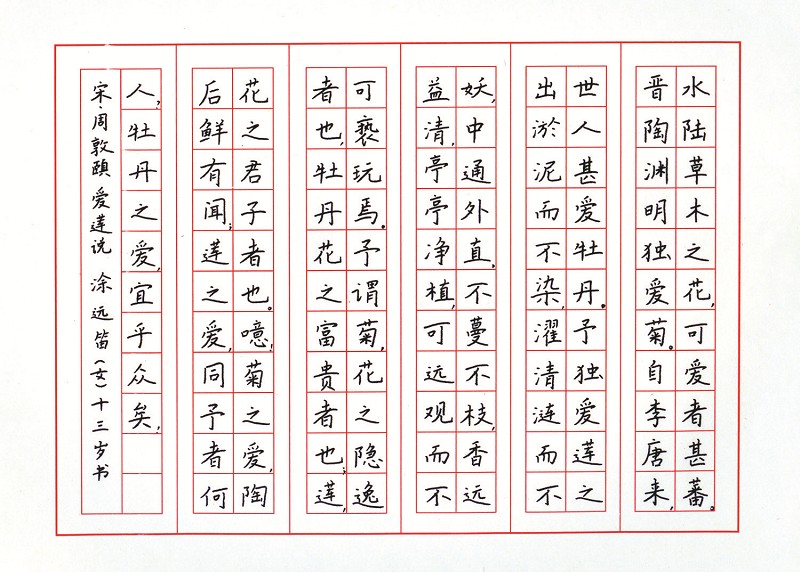 水陆草木之花,可爱者甚蕃。
晋陶渊明独爱菊。自李唐来,
世人甚爱牡丹。予独爱莲之
出淤泥而不染,濯清涟而不
妖,中通外直。不蔓不枝,香远
益清,亭亭净植,可远观而不
可亵玩焉。予谓菊,花之隐逸
者也,牡丹花之富贵者也;莲,
花之君子者也。噫!菊之爱,陶
后鲜有闻;莲之爱,同予者何
人,牡丹之爱,宜乎众矣!
宋·周敦颐 爱莲说 涂远笛(女)十三岁书